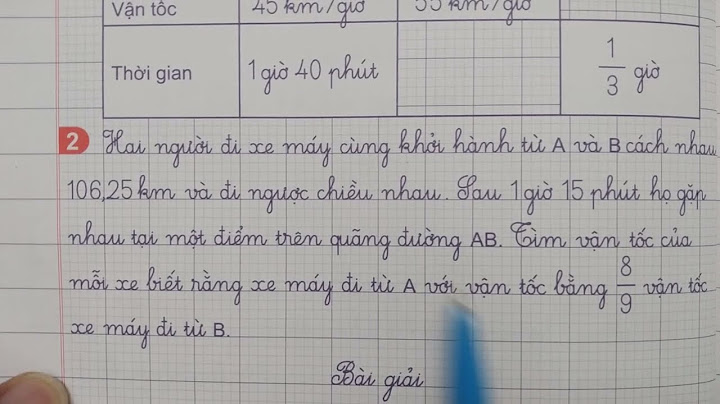 Vận tốc 45 km/giờ 55 km/giờ
Thời gian 1 giờ 40 phút 1/3 giờ
2 Hai người đi xe máy cùng khởi hành từ A và B cách nhau
106,25 km và đi ngược chiều nhau. Sau 1 giờ 15 phút họ gặp
nhau tại một điểm trên quãng đường AB. Tìm vận tốc của
mỗi xe biết rằng xe máy đi từ A với vận tốc bằng 8/9 vận tốc
xe máy đi từ B.
Bài giải